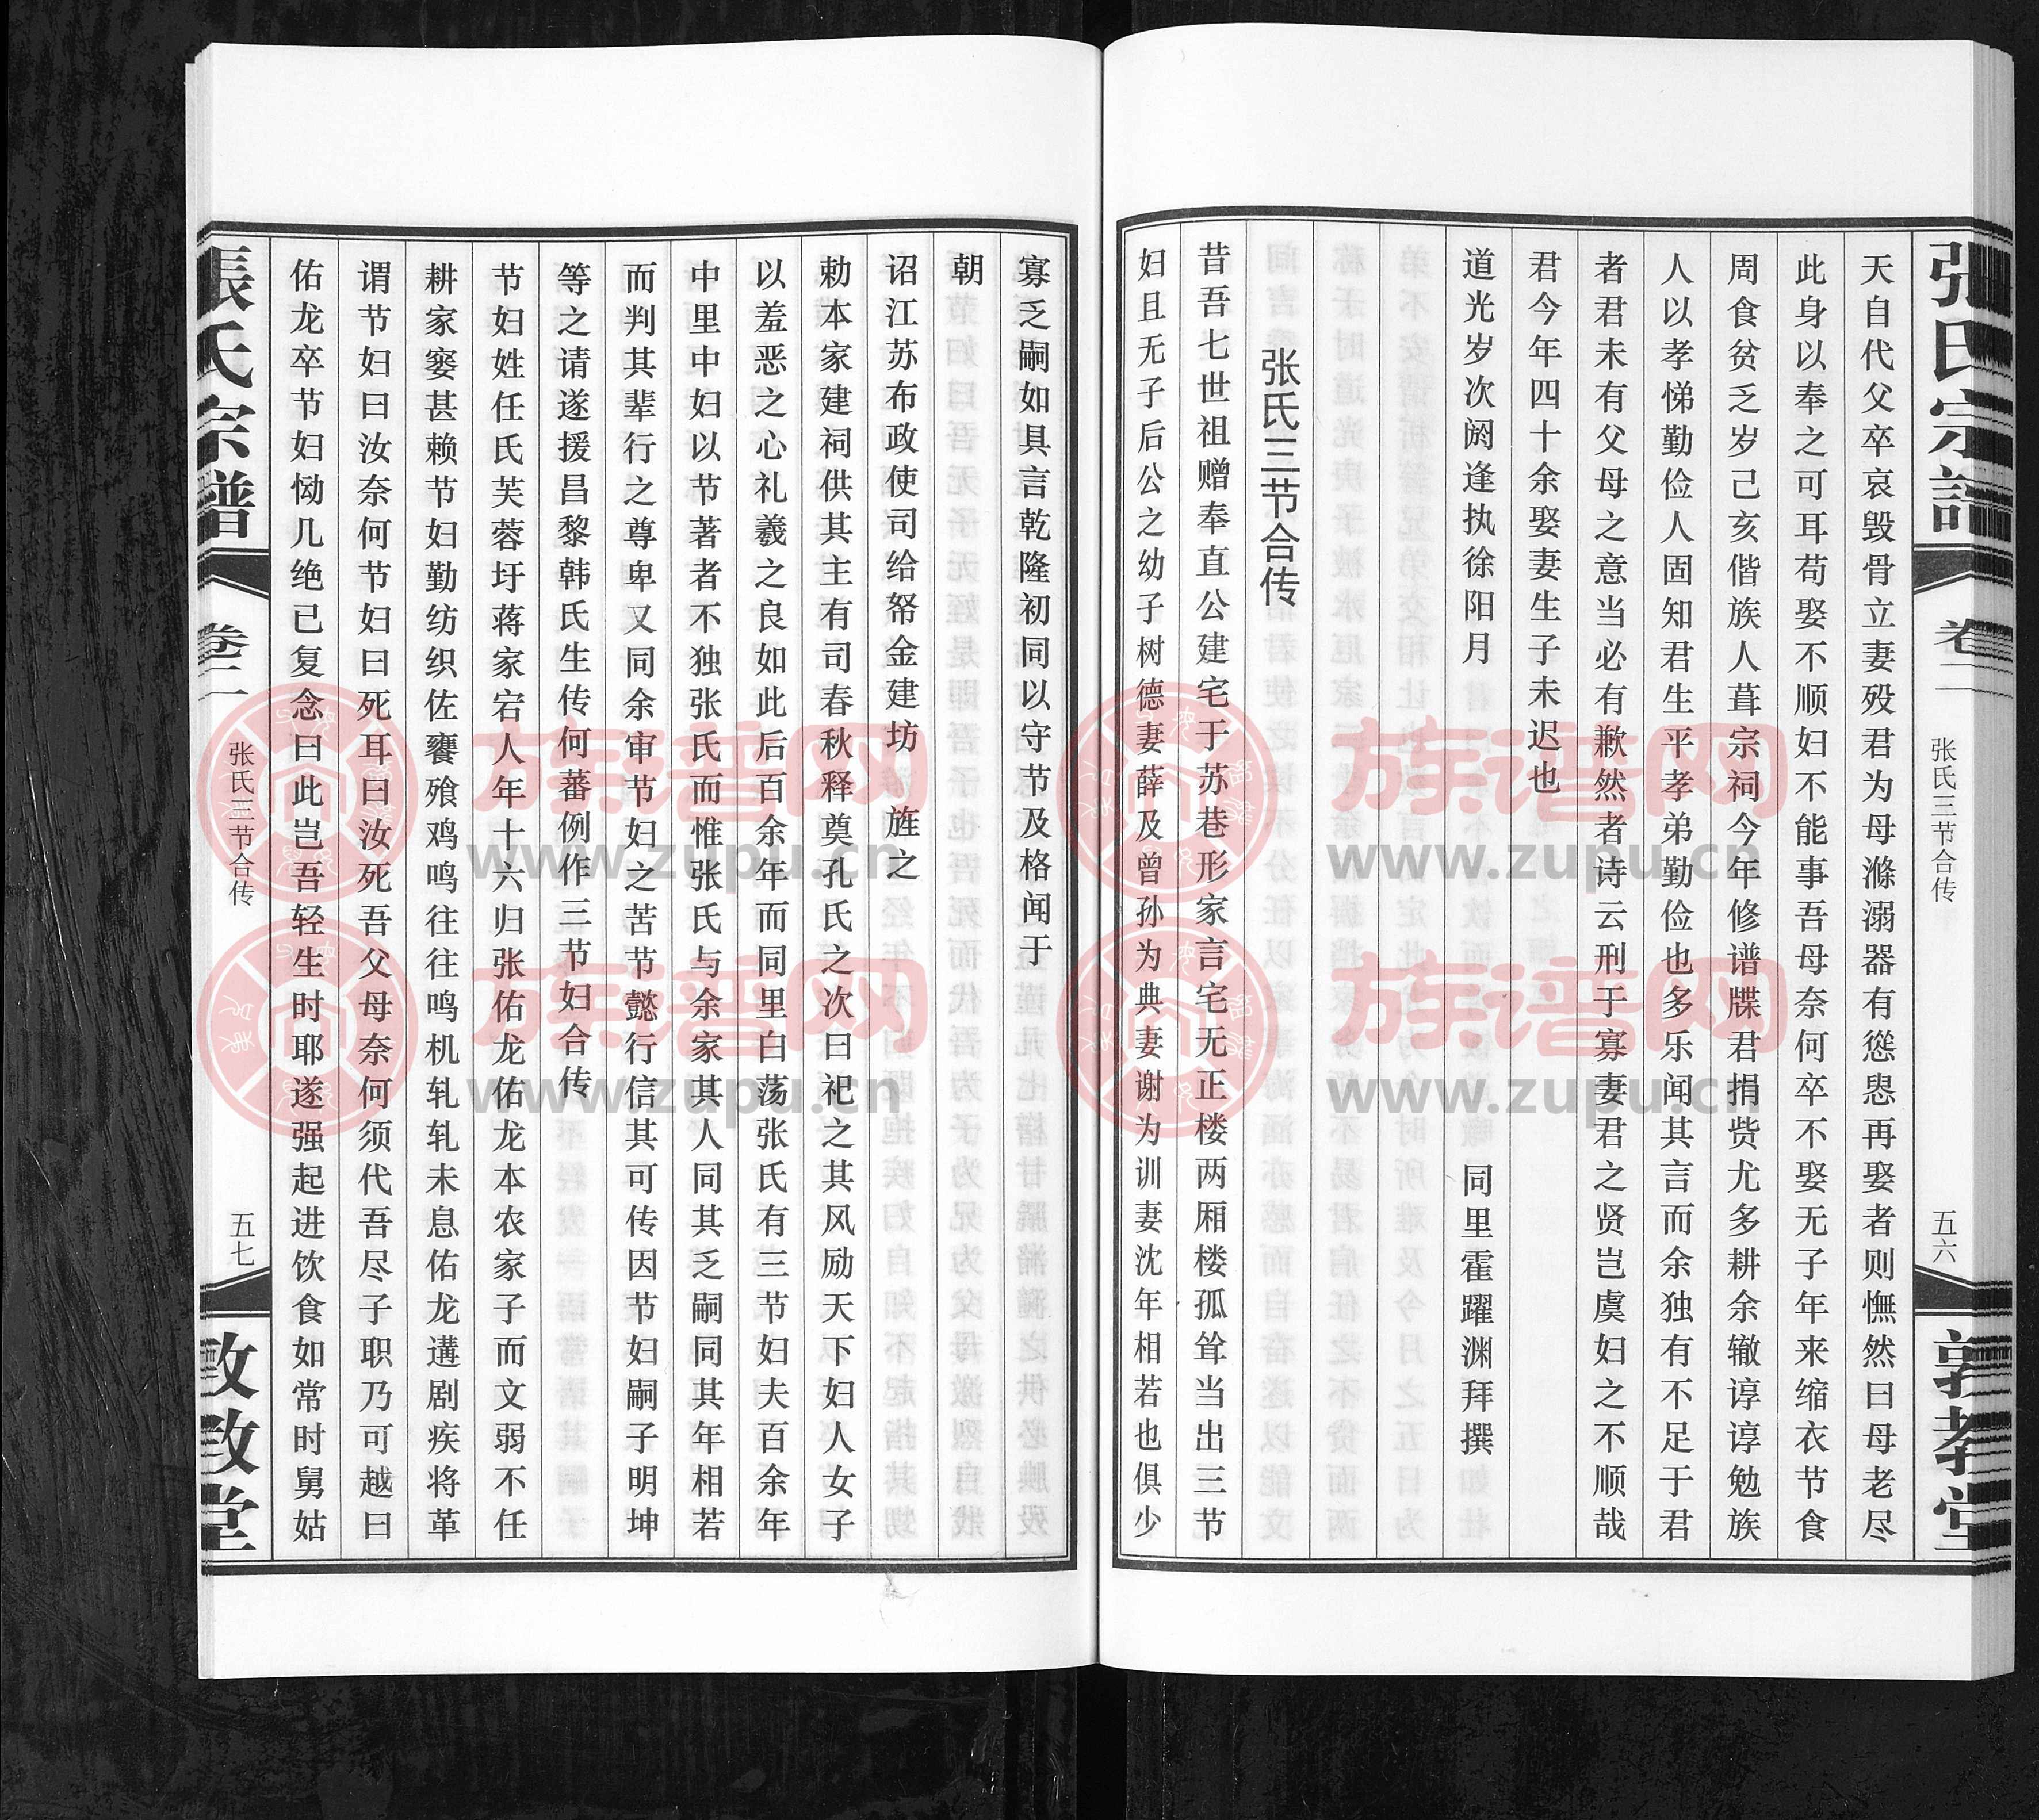 张氏宗譜
卷二
张氏三节合传
五六
敦教堂
天自代父卒哀毁骨立妻殁君为母滌溺器有慫恿再娶者则憮然曰母老尽
此身以奉之可耳苟娶不顺妇不能事吾母奈何卒不娶无子年来缩衣节食
周食贫乏岁己亥偕族人葺宗祠今年修谱牒君捐赀尤多耕余辙谆谆勉族
人以孝悌勤俭人固知君生平孝弟勤俭也多乐闻其言而余独有不足于君
者君未有父母之意当必有歉然者诗云刑于寡妻君之贤岂虞妇之不顺哉
君今年四十余娶妻生子未迟也
道光岁次阏逢执徐阳月
同里霍躍渊拜撰
张氏三节合传
昔吾七世祖赠奉直公建宅于苏巷形家言宅无正楼两厢楼孤耸当出三节
妇且无子后公之幼子树德妻薛及曾孙为典妻谢为训妻沈年相若也俱少
寡乏嗣如具言乾隆初同以守节及格闻于
朝
诏江苏布政使司给帑金建坊 旌之
勅本家建祠供其主有司春秋释奠孔氏之次曰祀之其风励天下妇人女子
以羞恶之心礼義之良如此后百余年而同里白荡张氏有三节妇夫百余年
中里中妇以节著者不独张氏而惟张氏与余家其人同其乏嗣同其年相若
而判其辈行之尊卑又同余审节妇之苦节懿行信其可传因节妇嗣子明坤
等之请遂援昌黎韩氏生传何蕃例作三节妇合传
节妇姓任氏芙蓉圩蒋家宕人年十六归张佑龙佑龙本农家子而文弱不任
耕家窭甚赖节妇勤纺织佐饔飧鸡鸣往往鸣机轧轧未息佑龙遘剧疾将革
谓节妇曰汝奈何节妇曰死耳曰汝死吾父母奈何须代吾尽子职乃可越日
佑龙卒节妇恸几绝已复念曰此岂吾轻生时耶遂强起进饮食如常时舅姑
張氏宗譜
卷二
张氏三节合传
五七
敦教堂
族谱网
www.zupu.cn
族谱网
www.zupu.cn
族谱网
www.zupu.cn
族谱网
www.zupu.cn